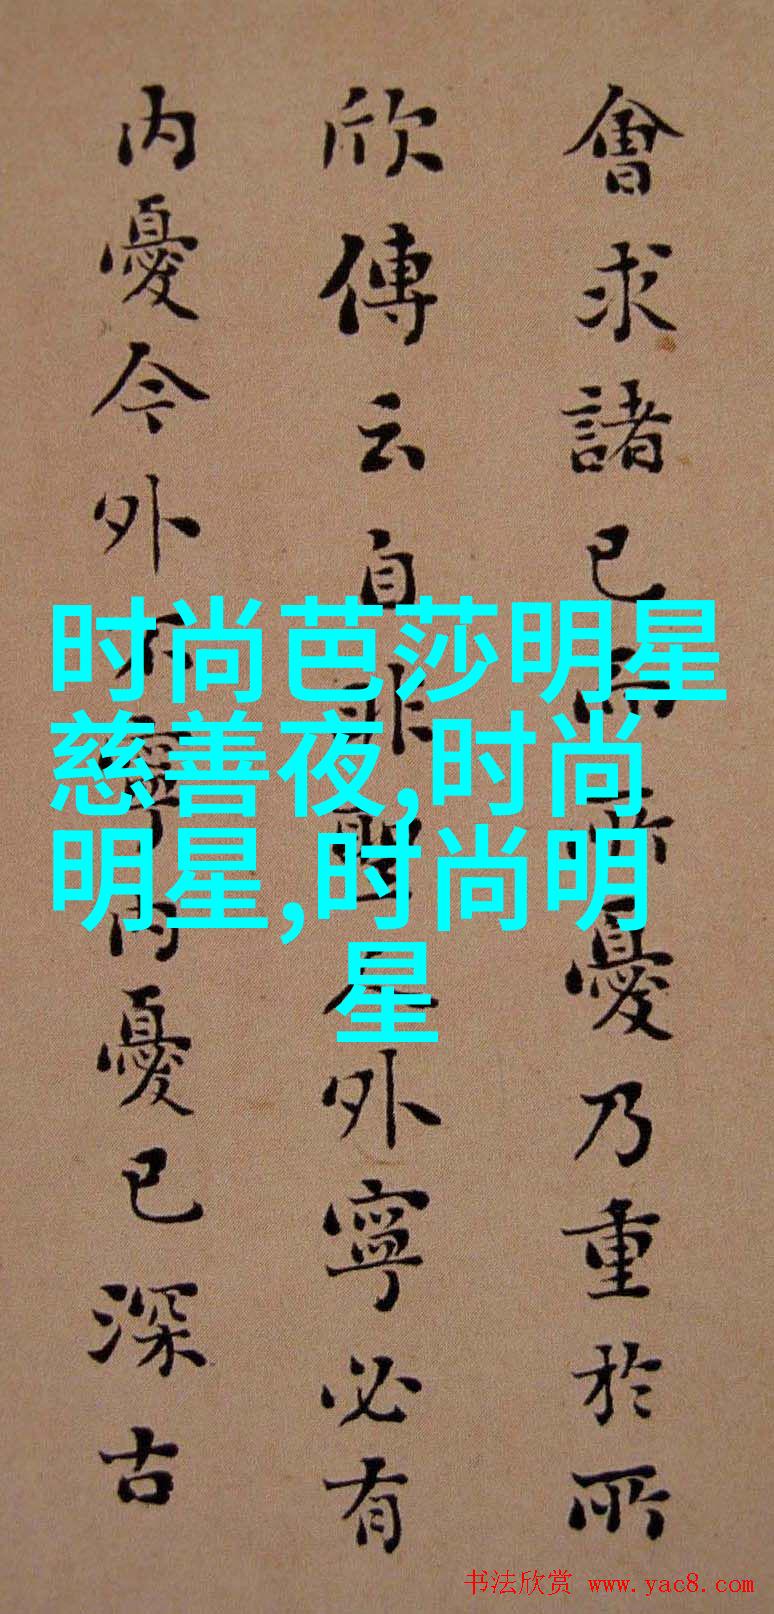 會求諸已而所憂乃重於所
欣傳云自非聖人外寧必有
内憂今外不寧内憂已深古
时尚芭莎明星
慈善夜,时尚
明星,时尚明
星
书法欣赏 www.yac8.com